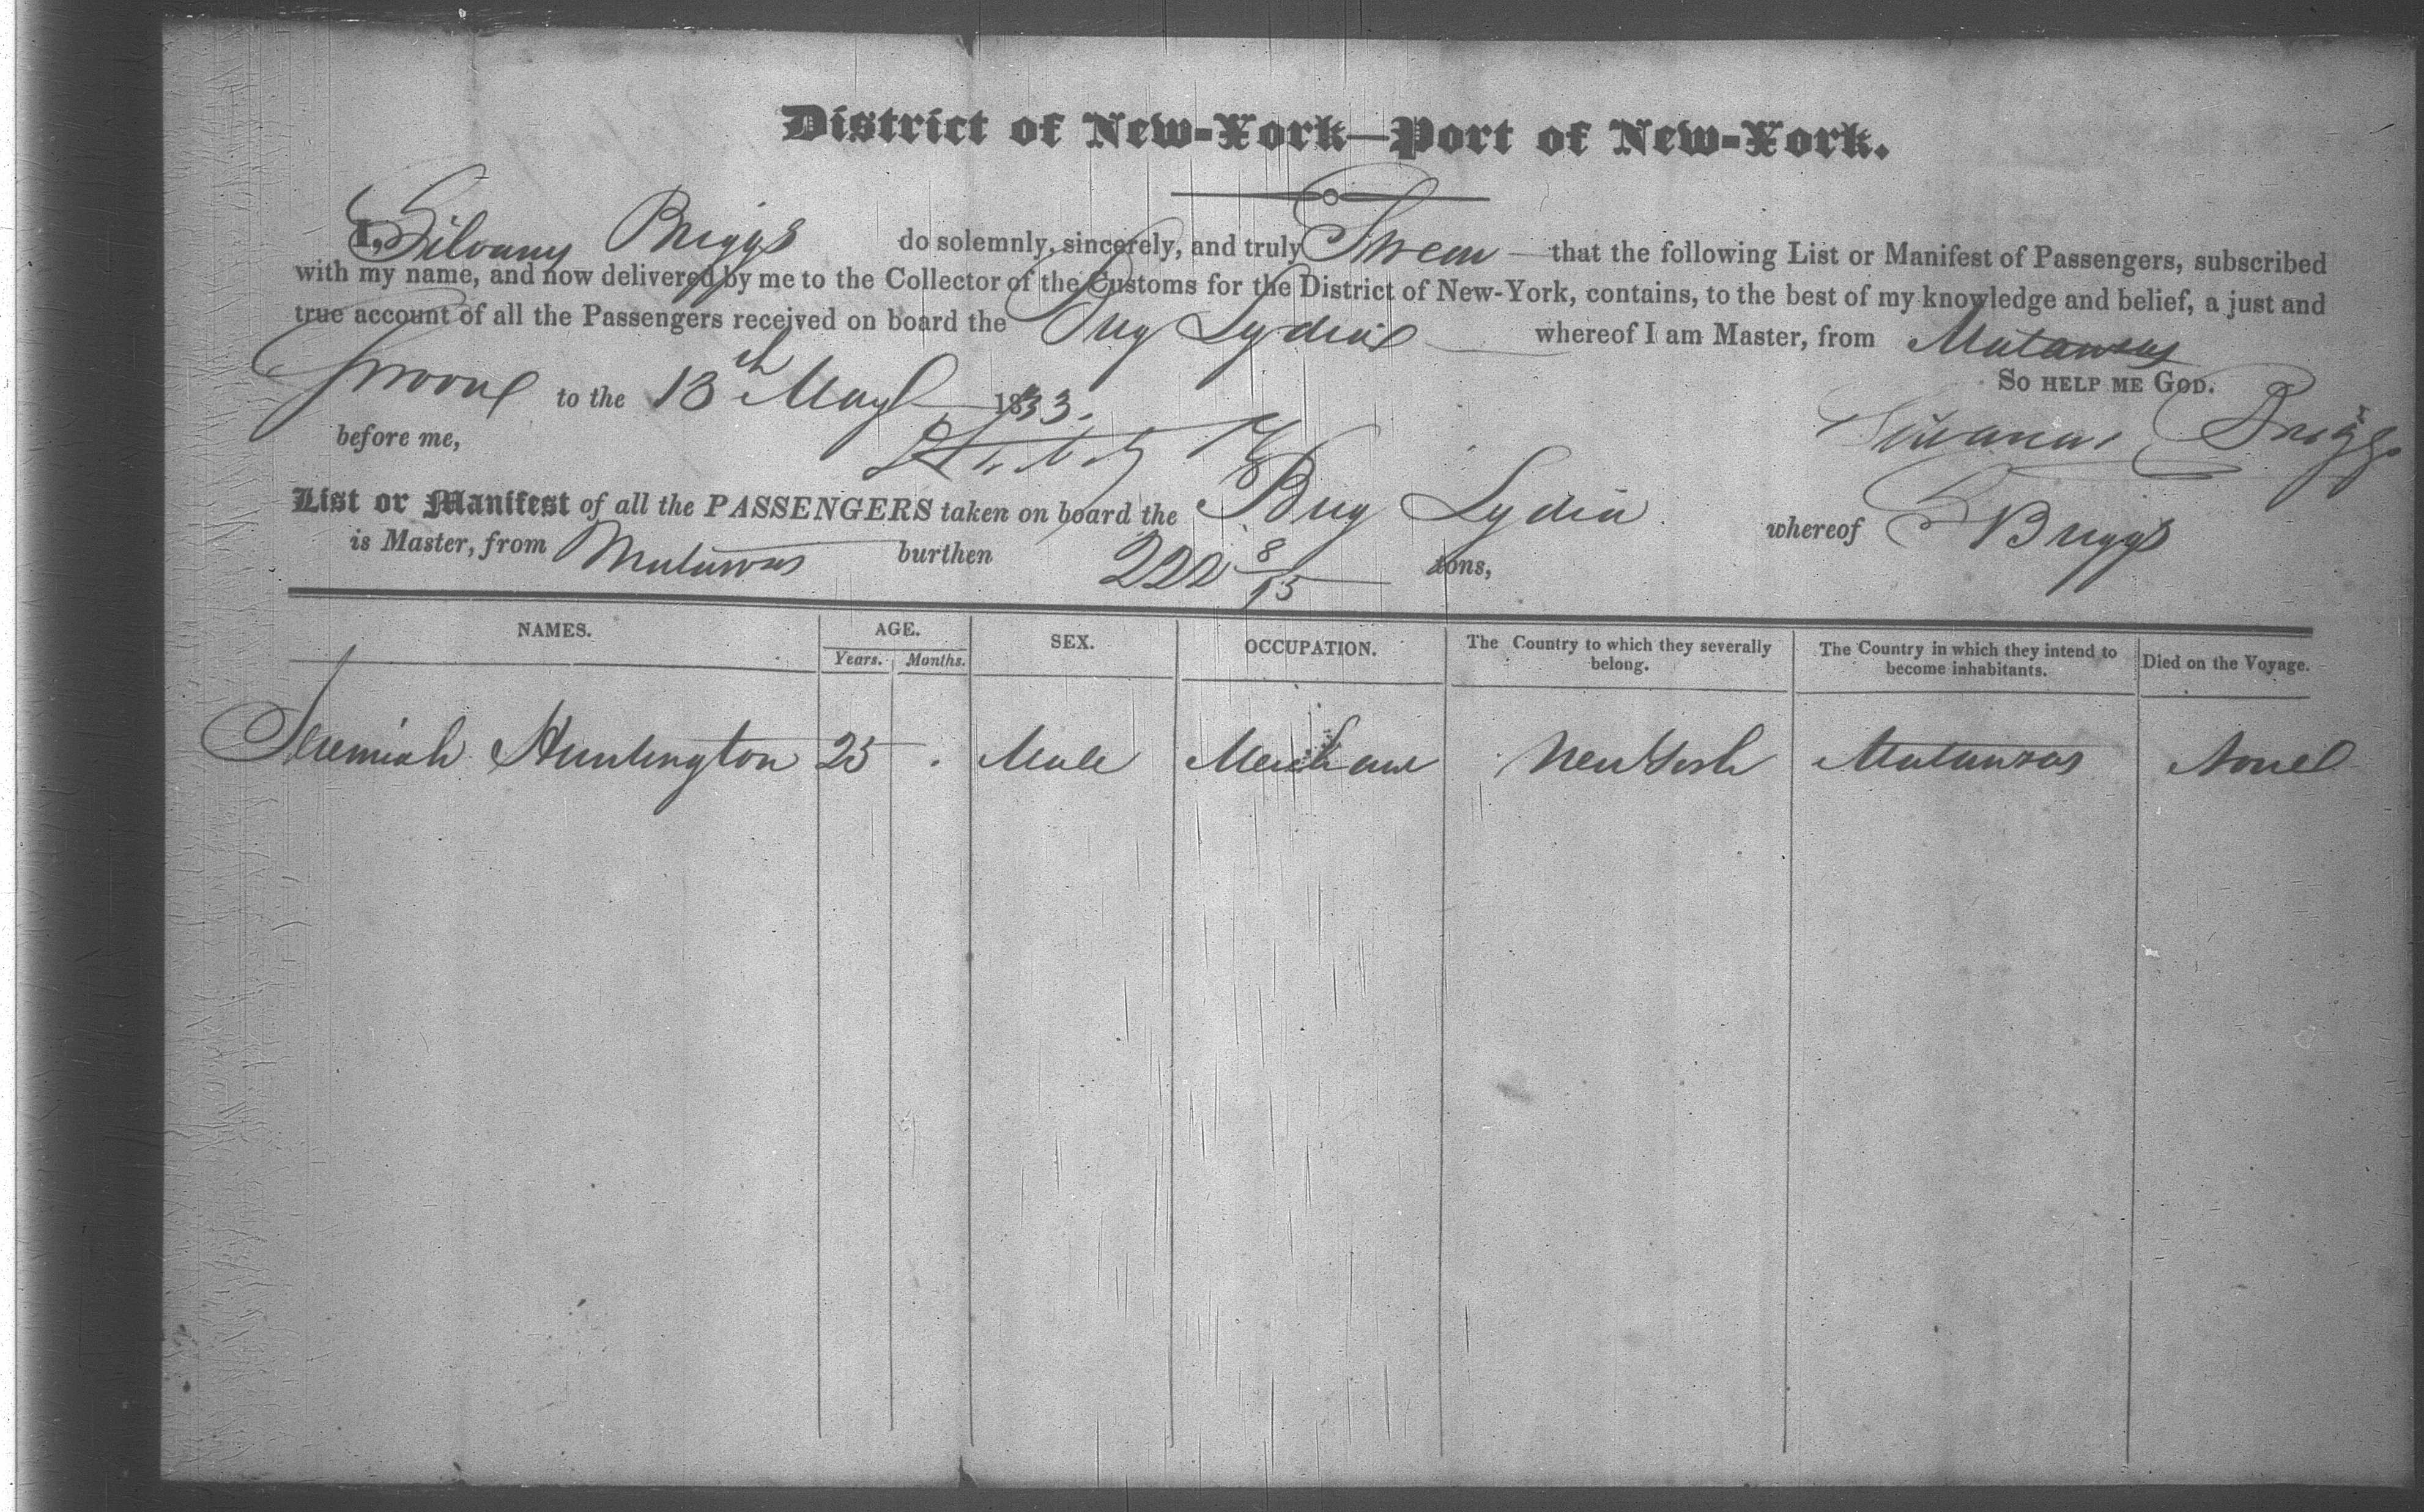 District of New-York—Port of New-York.
I, Silvanus Briggs do solemnly, sincerely, and truly Swear that the following List or Manifest of Passengers, subscribed
with my name, and now delivered by me to the Collector of the Customs for the District of New-York, contains, to the best of my knowledge and belief, a just and
true account of all the Passengers received on board the Brig Lydia whereof I am Master, from Matanzas
Sworne to the 13th May 1833. So help me God.
before me, Silvanus Briggs
List or Manifest of all the PASSENGERS taken on board the Brig Lydia whereof S Briggs
is Master, from Matanzas burthen 220 8/95 tons,
NAMES. AGE. SEX. OCCUPATION. The Country to which they severally belong. The Country in which they intend to become inhabitants. Died on the Voyage.
Years. Months.
Jeremiah Huntington 25 Male Merchant New York Matanzas None